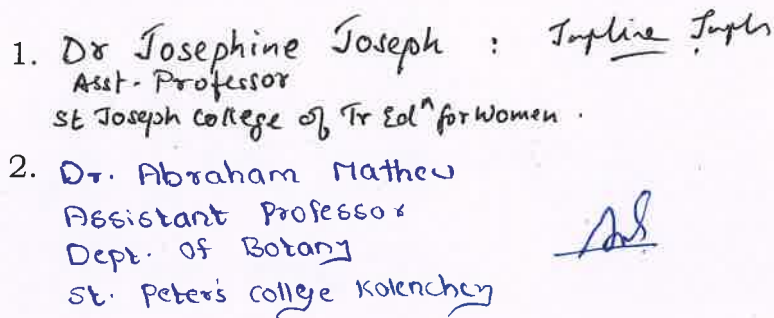 1. Dr Josephine Joseph :
Asst. Professor
St Joseph College of Tr Edn for Women .
2. Dr. Abraham Mathew
Assistant Professor
Dept. Of Botany
St. Peter's College Kolenchery